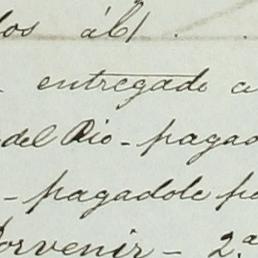 los ábl
entregado a
del Rio - pagad
- pagadole po
Porvenir - 2.a